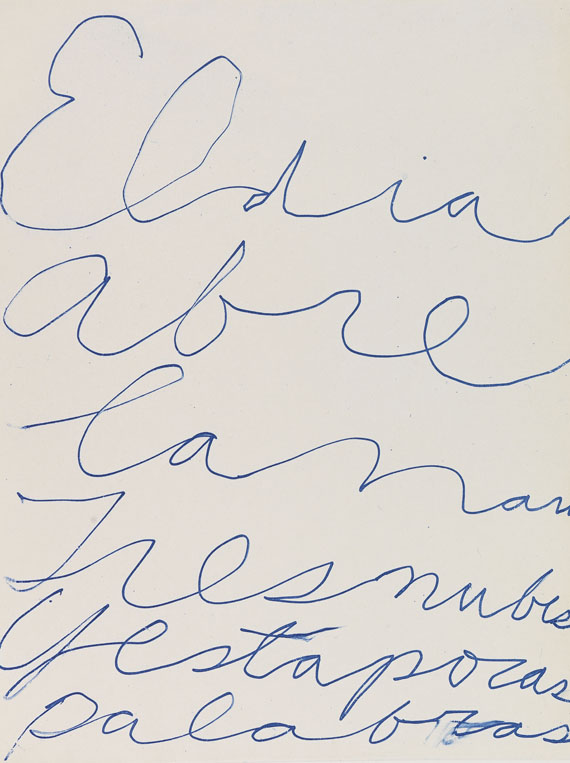 El dia
abre
la man
Tres nubes
Y esta pocas
palabras